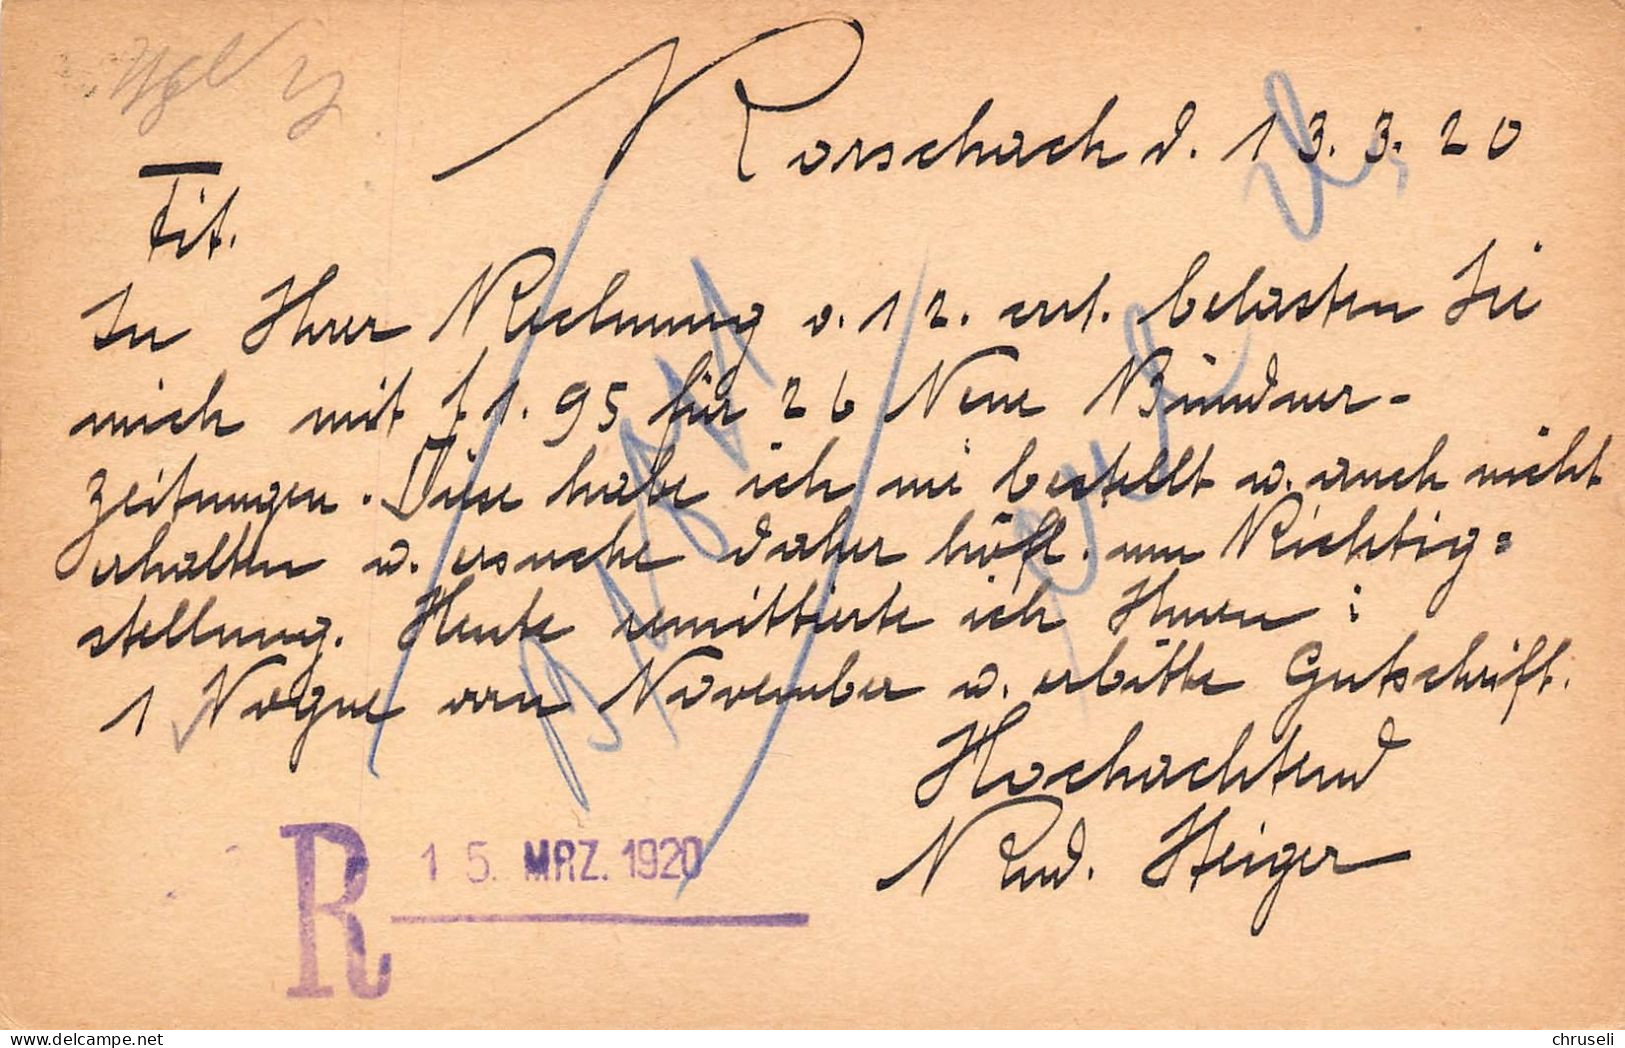 Rorschach d. 13.3.20
Tit.
In Ihrer Rechnung v. 12. crt. belasten Sie
mich mit f 1.95 für 26 Neue Bündner-
zeitungen. Diese habe ich nie bestellt u. auch nicht
erhalten u. ersuche daher höfl. um Richtig=
stellung. Heute remittierte ich Ihnen:
1 Vogue von November u. erbitte Gutschrift.
Hochachtend
Rud. Heiger
R 15. MRZ. 1920
chruseli
delcampe.net